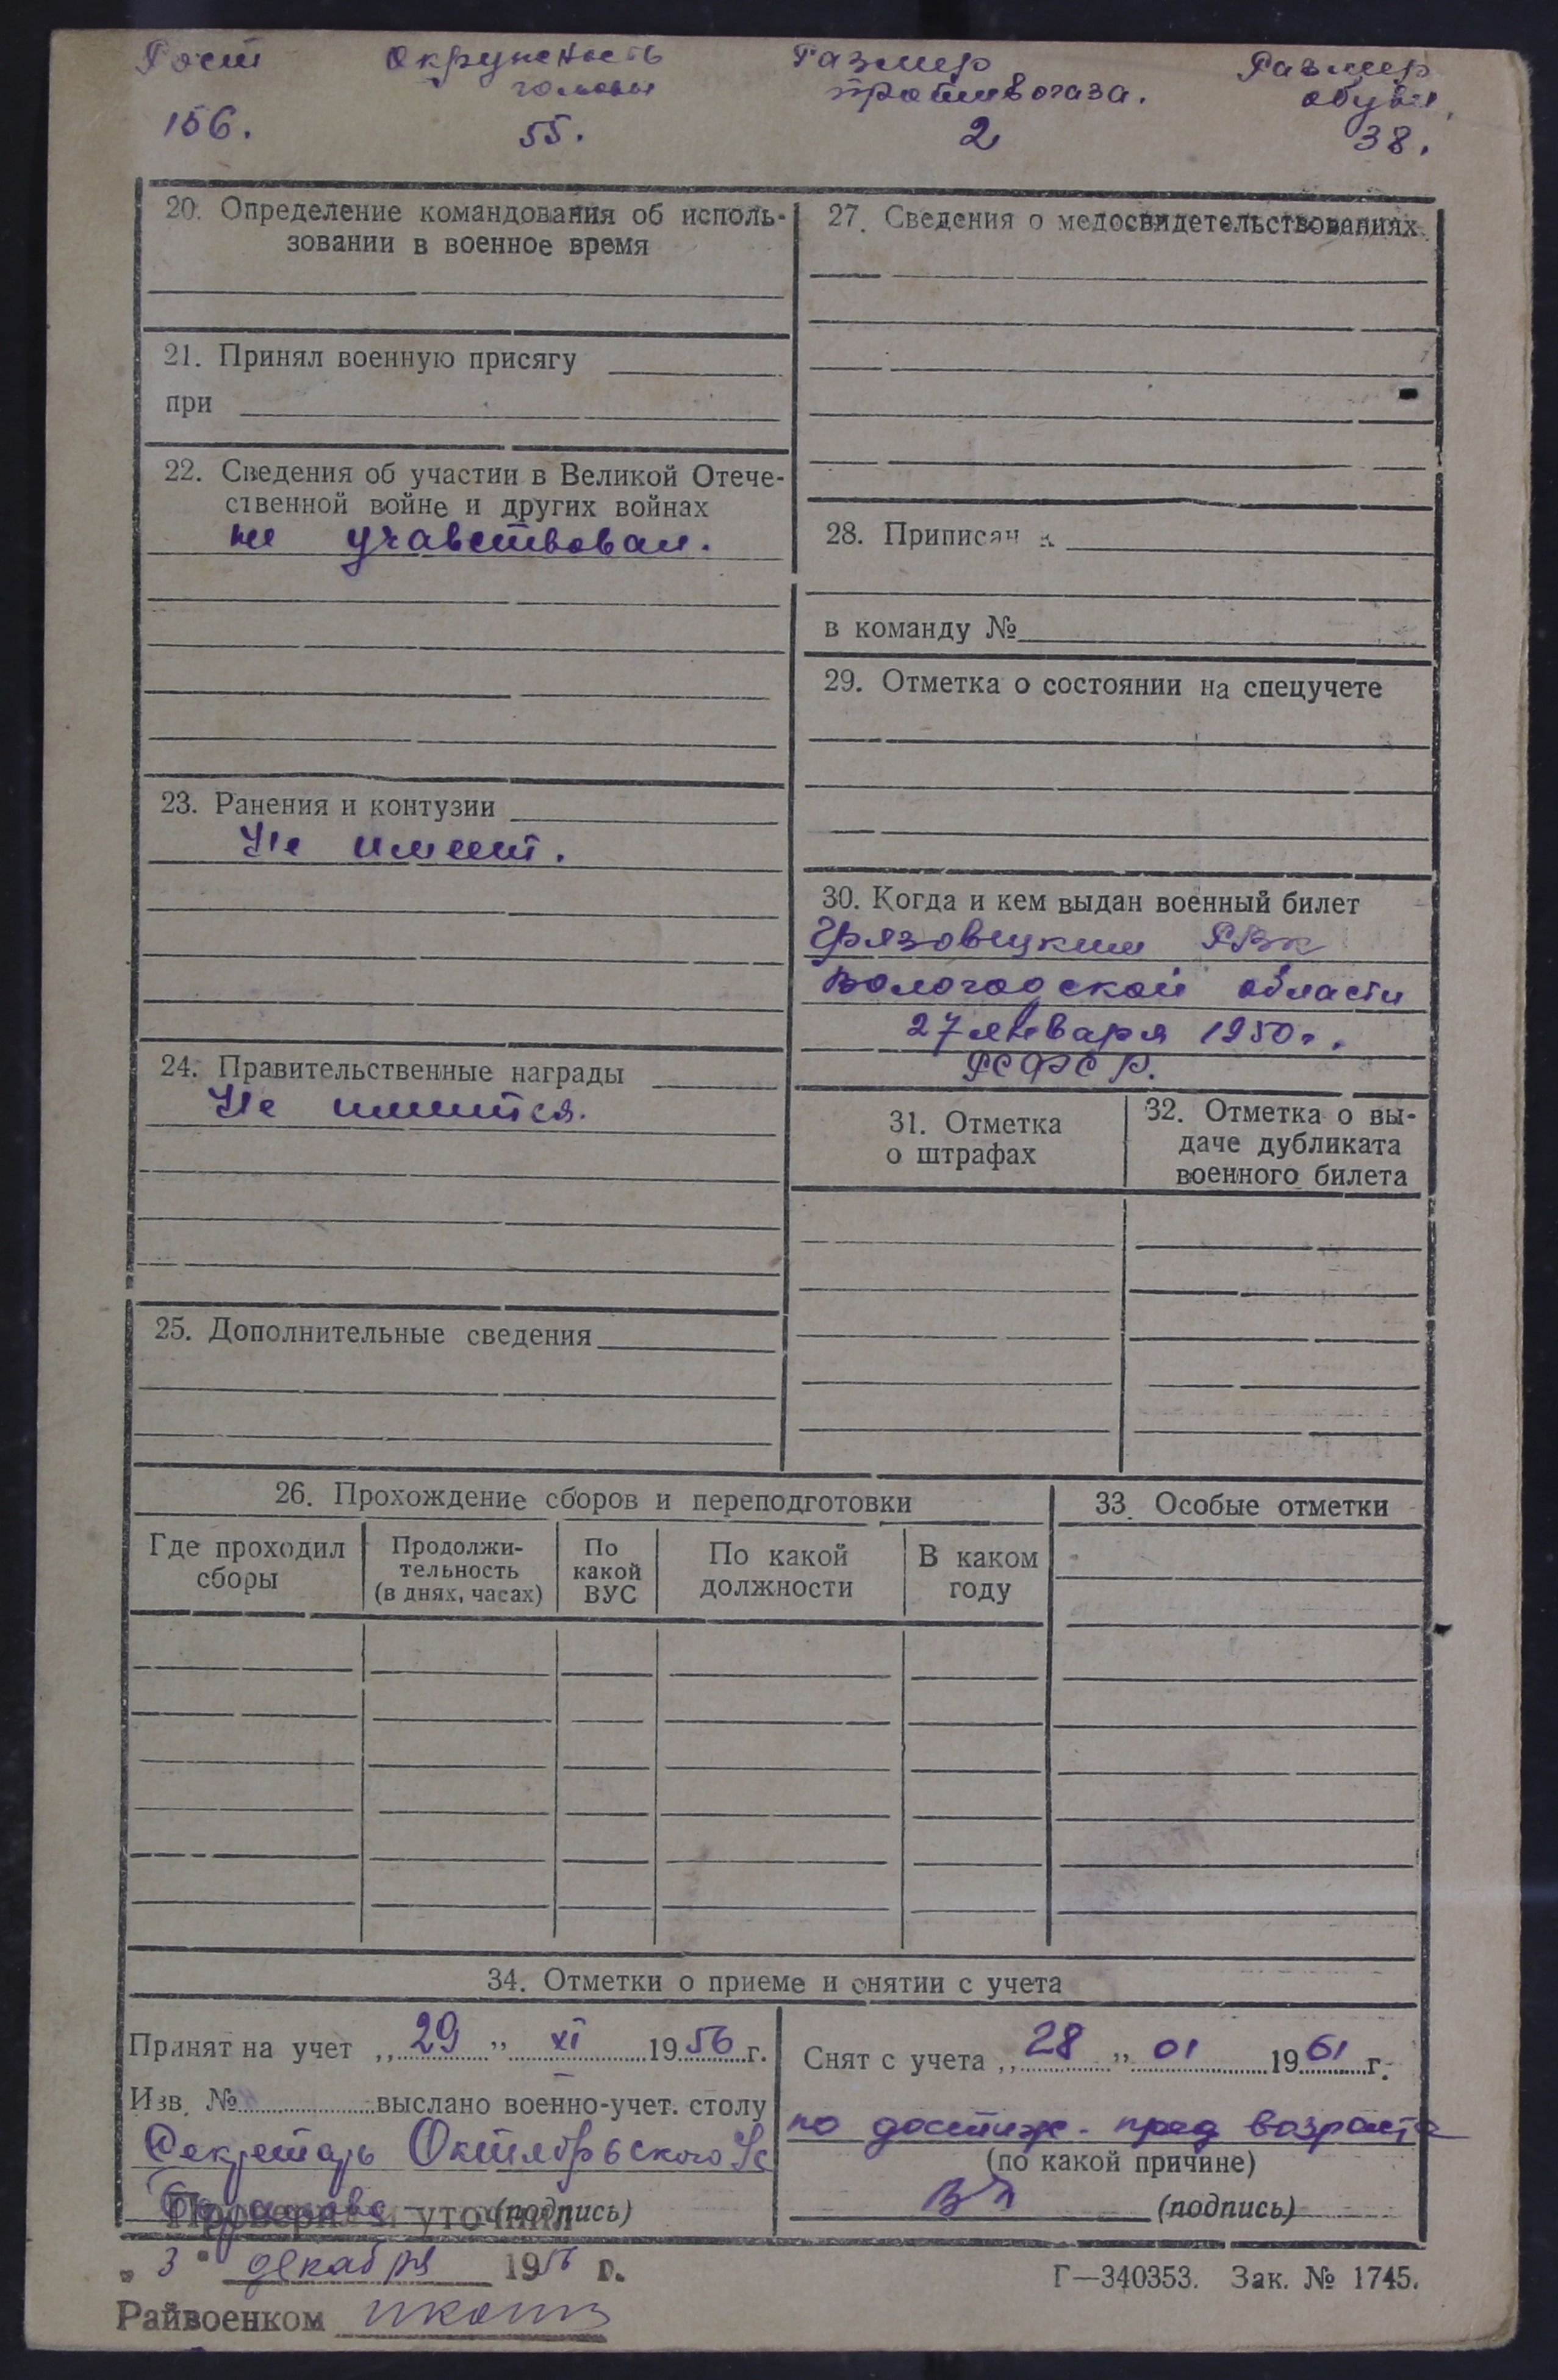 Рост Окружность Размер Размер
головы противогаза. обуви,
156. 55. 2 38.
20. Определение командования об исполь-
зовании в военное время
21. Принял военную присягу
при
22. Сведения об участии в Великой Отече-
ственной войне и других войнах
не учавствовал.
23. Ранения и контузии
Не имеет.
24. Правительственные награды
Не имеится.
25. Дополнительные сведения
27. Сведения о медосвидетельствованиях
28. Приписан к
в команду №
29. Отметка о состоянии на спецучете
30. Когда и кем выдан военный билет
Грязовецким РВК
Вологодской области
27 января 1950 г.
РСФСР.
31. Отметка
о штрафах
32. Отметка о вы-
даче дубликата
военного билета
26. Прохождение сборов и переподготовки
Где проходил
сборы
Продолжи-
тельность
(в днях, часах)
По
какой
ВУС
По какой
должности
В каком
году
33. Особые отметки
34. Отметки о приеме и снятии с учета
Принят на учет „29" XI 1956 г.
Изв. № выслано военно-учет. столу
Секретарь Октябрьского
(подпись)
Снят с учета „28" 01 1961 г.
по достиж. пред возраста
(по какой причине)
(подпись)
Проверил и уточнил
„3" декабря 1956 г.
Райвоенком
Г—340353. Зак. № 1745.